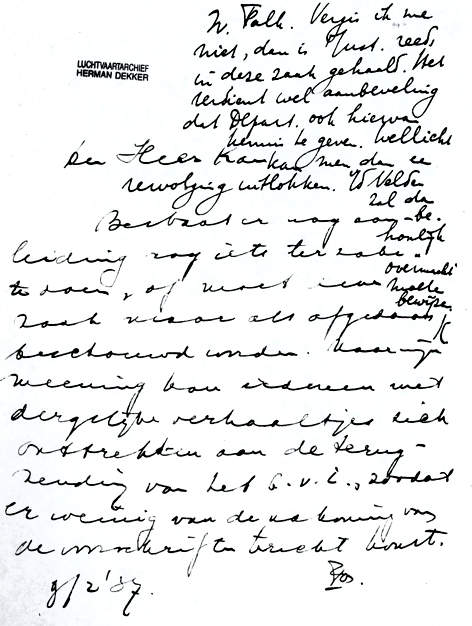 W. Falk. Vergis ik me
niet, dan is Just. reeds
in deze zaak gehaald. Het
verdient wel aanbeveling
dat Depart. ook hiervan
kennis te geven. Wellicht
kan men dan een
LUCHTVAARTARCHIEF
HERMAN DEKKER
Den Heer
uitlokken. v/d Velden
zal de
be-
Bestaat er nog aan-
leiding nog iets ter zake
te doen, of moet
zaak als afgedaan
beschouwd worden. Naar mijn
meening kan iedereen met
dergelijke verhaaltjes zich
onttrekken aan de terug-
zending van het B.v.I., zoodat
er weinig van de nakoming van
de voorschriften terecht komt.
9/2 '37.
Vos.